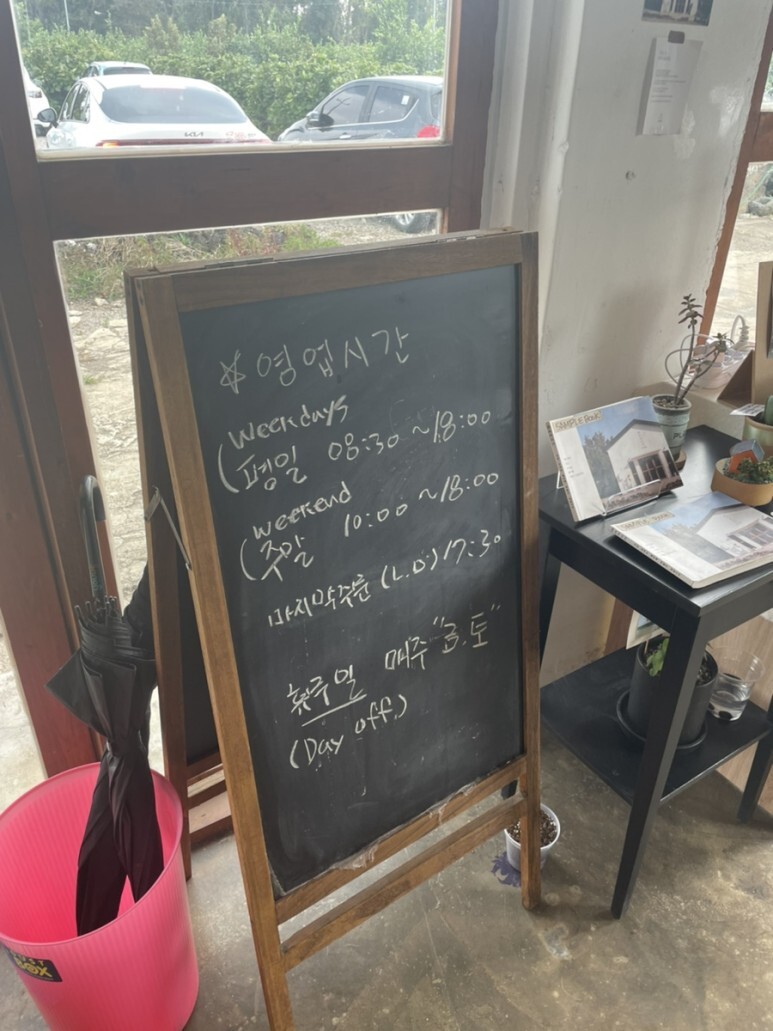 ☆영업시간
(Weekdays
평일 08:30 ~18:00
(weekend
주말 10:00 ~18:00
마지막주문 (L.O) 17:30
휴무일 매주 "금.토"
(Day off.)
SAMPLE BOOK
KIA
BOX